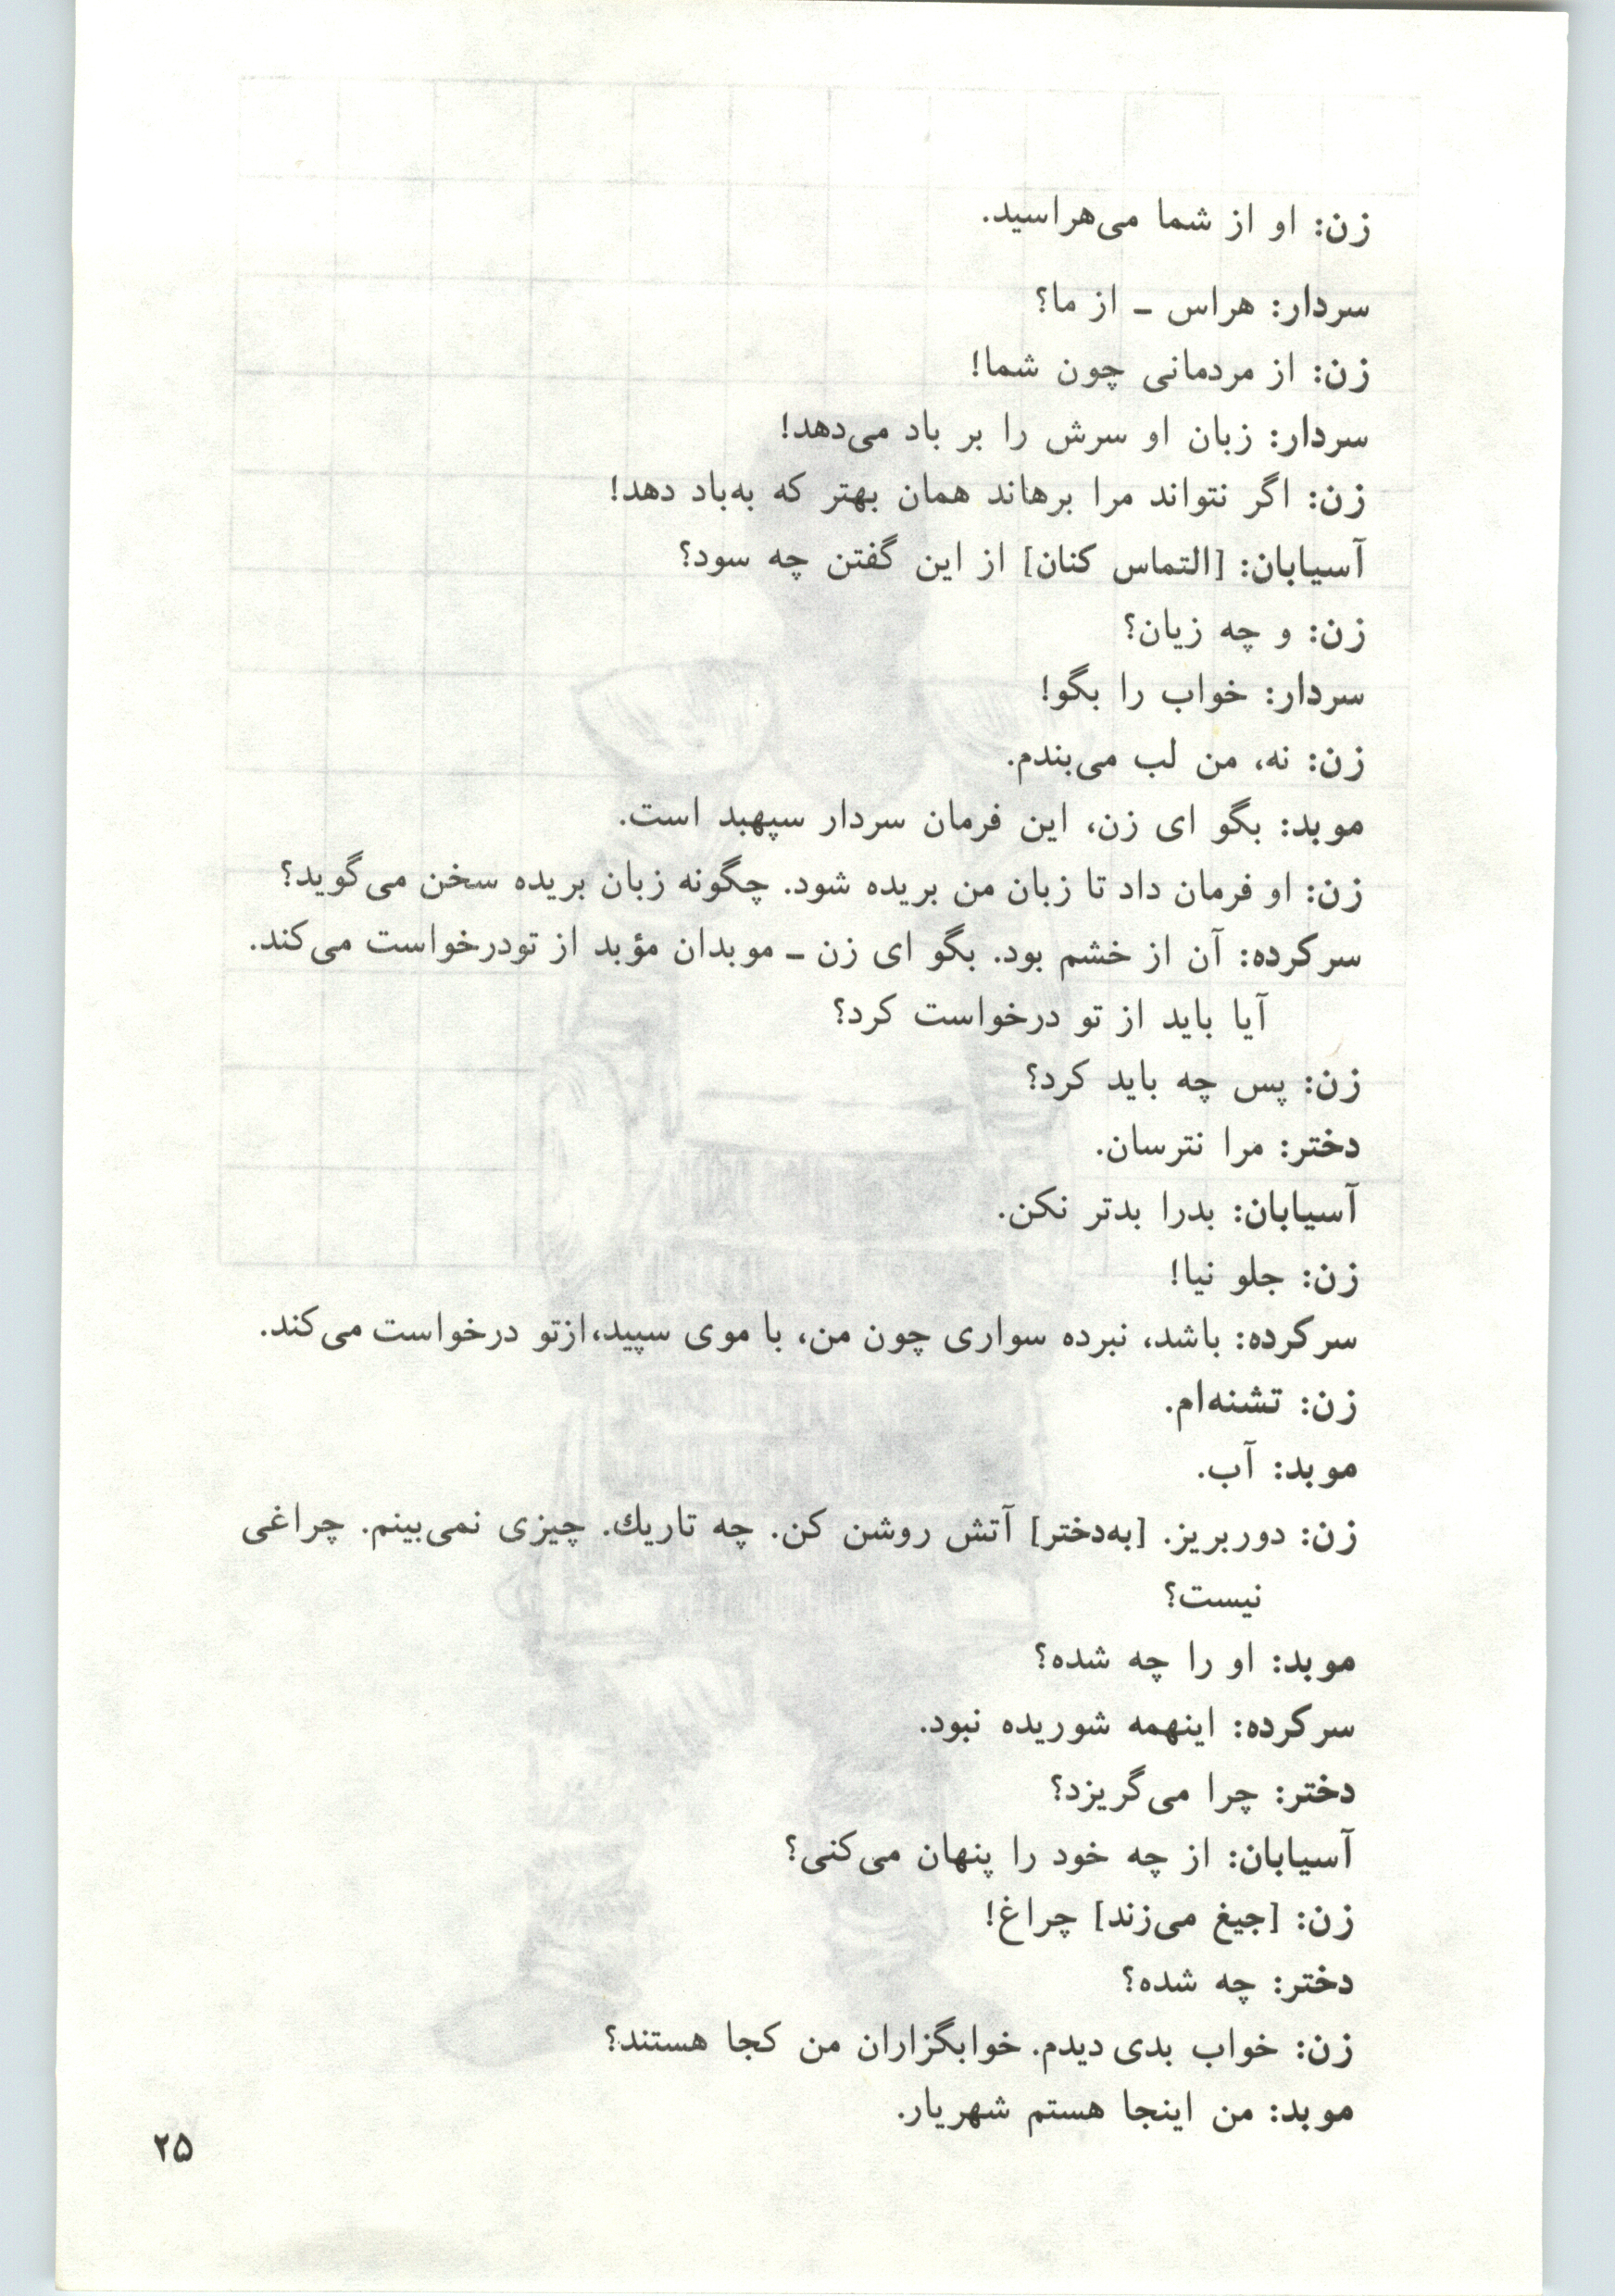 زن: او از شما می‌هراسید.
سردار: هراس ـ از ما؟
زن: از مردمانی چون شما!
سردار: زبان او سرش را بر باد می‌دهد!
زن: اگر نتواند مرا برهاند همان بهتر که به‌باد دهد!
آسیابان: [التماس کنان] از این گفتن چه سود؟
زن: و چه زیان؟
سردار: خواب را بگو!
زن: نه، من لب می‌بندم.
موبد: بگو ای زن، این فرمان سردار سپهبد است.
زن: او فرمان داد تا زبان من بریده شود. چگونه زبان بریده سخن می‌گوید؟
سرکرده: آن از خشم بود. بگو ای زن ـ موبدان مؤبد از تودرخواست می‌کند.
آیا باید از تو درخواست کرد؟
زن: پس چه باید کرد؟
دختر: مرا نترسان.
آسیابان: بدرا بدتر نکن.
زن: جلو نیا!
سرکرده: باشد، نبرده سواری چون من، با موی سپید،ازتو درخواست می‌کند.
زن: تشنه‌ام.
موبد: آب.
زن: دوربریز. [به‌دختر] آتش روشن کن. چه تاریك. چیزی نمی‌بینم. چراغی
نیست؟
موبد: او را چه شده؟
سرکرده: اینهمه شوریده نبود.
دختر: چرا می‌گریزد؟
آسیابان: از چه خود را پنهان می‌کنی؟
زن: [جیغ می‌زند] چراغ!
دختر: چه شده؟
زن: خواب بدی دیدم. خوابگزاران من کجا هستند؟
موبد: من اینجا هستم شهریار.
۲۵